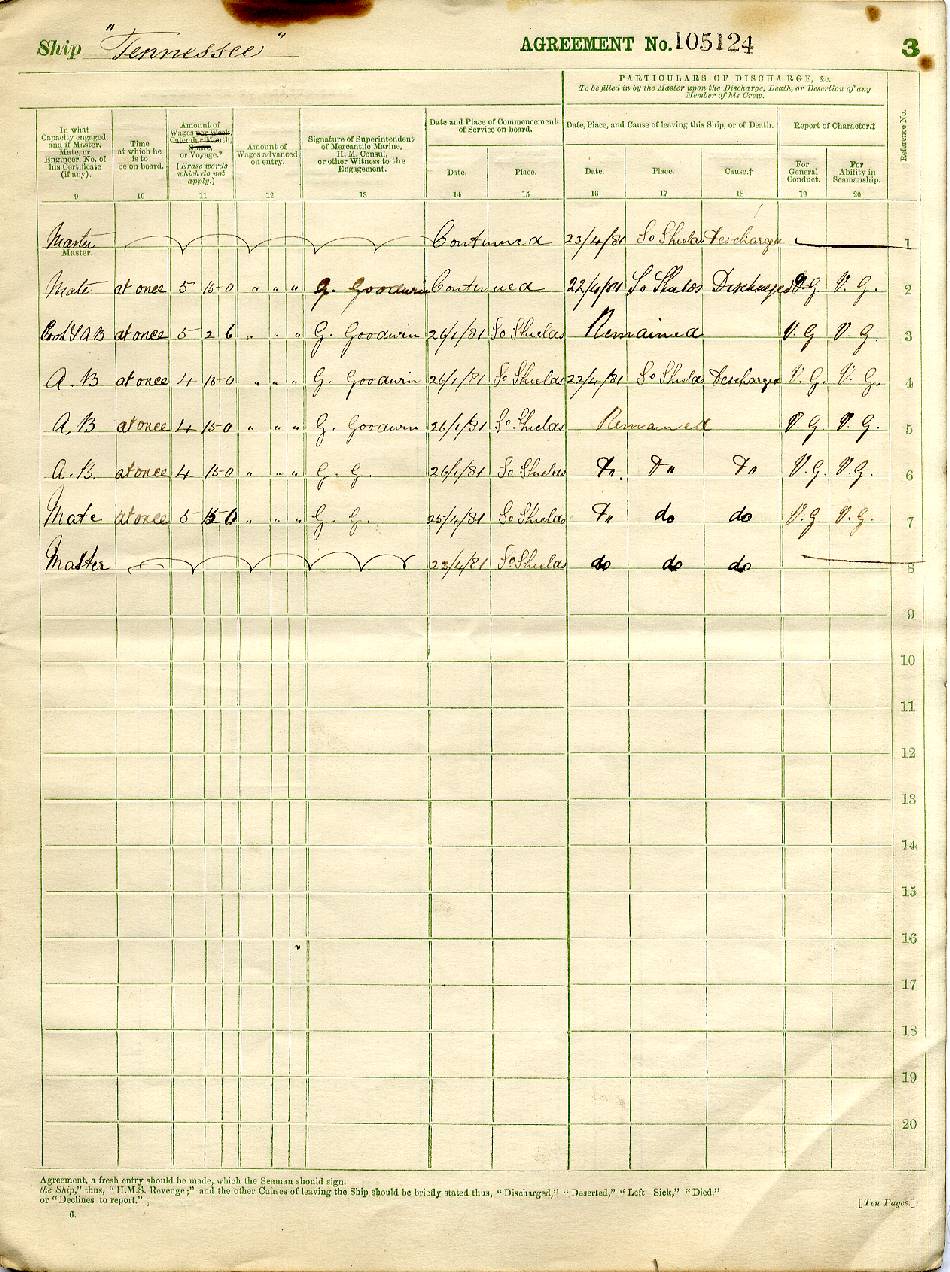 Ship "Tennessee" AGREEMENT No. 105124 3
PARTICULARS OF DISCHARGE, &c.
To be filled in by the Master upon the Discharge, Death, or Desertion of any
Member of his Crew.
In what
Capacity engaged
and if Master,
Mate or
Engineer, No. of
his Certificate
(if any).
Time
at which he
is to
be on board.
Amount of
Wages per Week
Calendar Month
or Voyage.*
[Erase words
which do not
apply.]
Amount of
Wages advanced
on entry.
Signature of Superintendent
of Mercantile Marine,
H.M. Consul,
or other Witness to the
Engagement.
Date and Place of Commencement
of Service on board.
Date. Place.
Date, Place, and Cause of leaving this Ship, or of Death.
Date. Place. Cause.†
Report of Character.‡
For
General
Conduct.
For
Ability in
Seamanship.
Reference No.
9 10 11 12 13 14 15 16 17 18 19 20
Master Continued 23/4/81 So Shields Discharged 1
Master.
Mate at once 5 15 0 " " " G. Goodwin Continued 22/4/81 So Shields Discharged V.G V.G. 2
Cook & AB at once 5 2 6 " " " G. Goodwin 26/1/81 So Shields Remained V.G V.G. 3
A.B at once 4 15 0 " " " G. Goodwin 26/1/81 So Shields 23/4/81 So Shields Discharged V.G. V.G. 4
A.B at once 4 15 0 " " " G. Goodwin 26/1/81 So Shields Remained V.G V.G. 5
A.B. at once 4 15 0 " " " G. G. 26/1/81 So Shields Do. Do Do V.G. V.G. 6
Mate at once 5 15 0 " " " G. G. 25/4/81 So Shields Do do do V.G V.G. 7
Master 23/4/81 So Shields do do do 8
9
10
11
12
13
14
15
16
17
18
19
20
Agreement, a fresh entry should be made, which the Seaman should sign.
the Ship," thus, "H.M.S. Revenge;" and the other Causes of leaving the Ship should be briefly stated thus, "Discharged," "Deserted," "Left Sick," "Died."
or "Declines to report."; [Ten Pages.]
6.